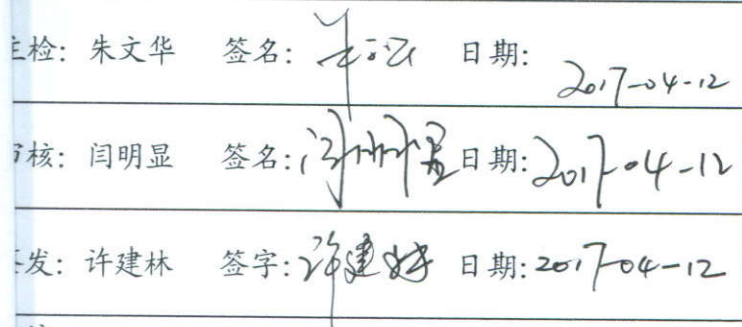 主检: 朱文华 签名: 日期: 2017-04-12
审核: 闫明显 签名: 闫明显 日期: 2017-04-12
签发: 许建林 签字: 许建林 日期: 2017-04-12